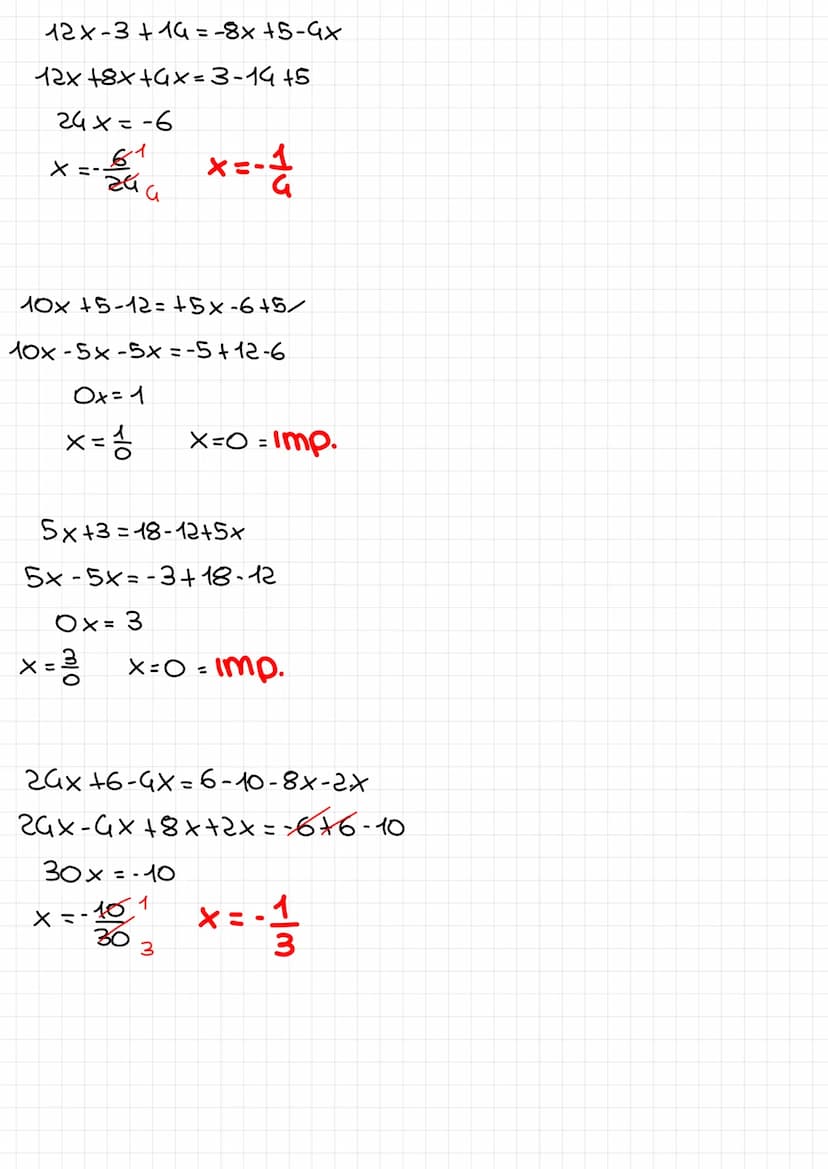 12x-3+14=-8x+5-4x
12x+8x+4x=3-14+5
24x=-6
x=-6/24 1 4 x=-1/4
10x+5-12=+5x-6+5x
10x-5x-5x=-5+12-6
0x=1
x=1/0 x=0=Imp.
5x+3=18-12+5x
5x-5x=-3+18-12
0x=3
x=3/0 x=0=Imp.
24x+6-4x=6-10-8x-2x
24x-4x+8x+2x=-6+6-10
30x=-10
x=-10/30 1 3 x=-1/3